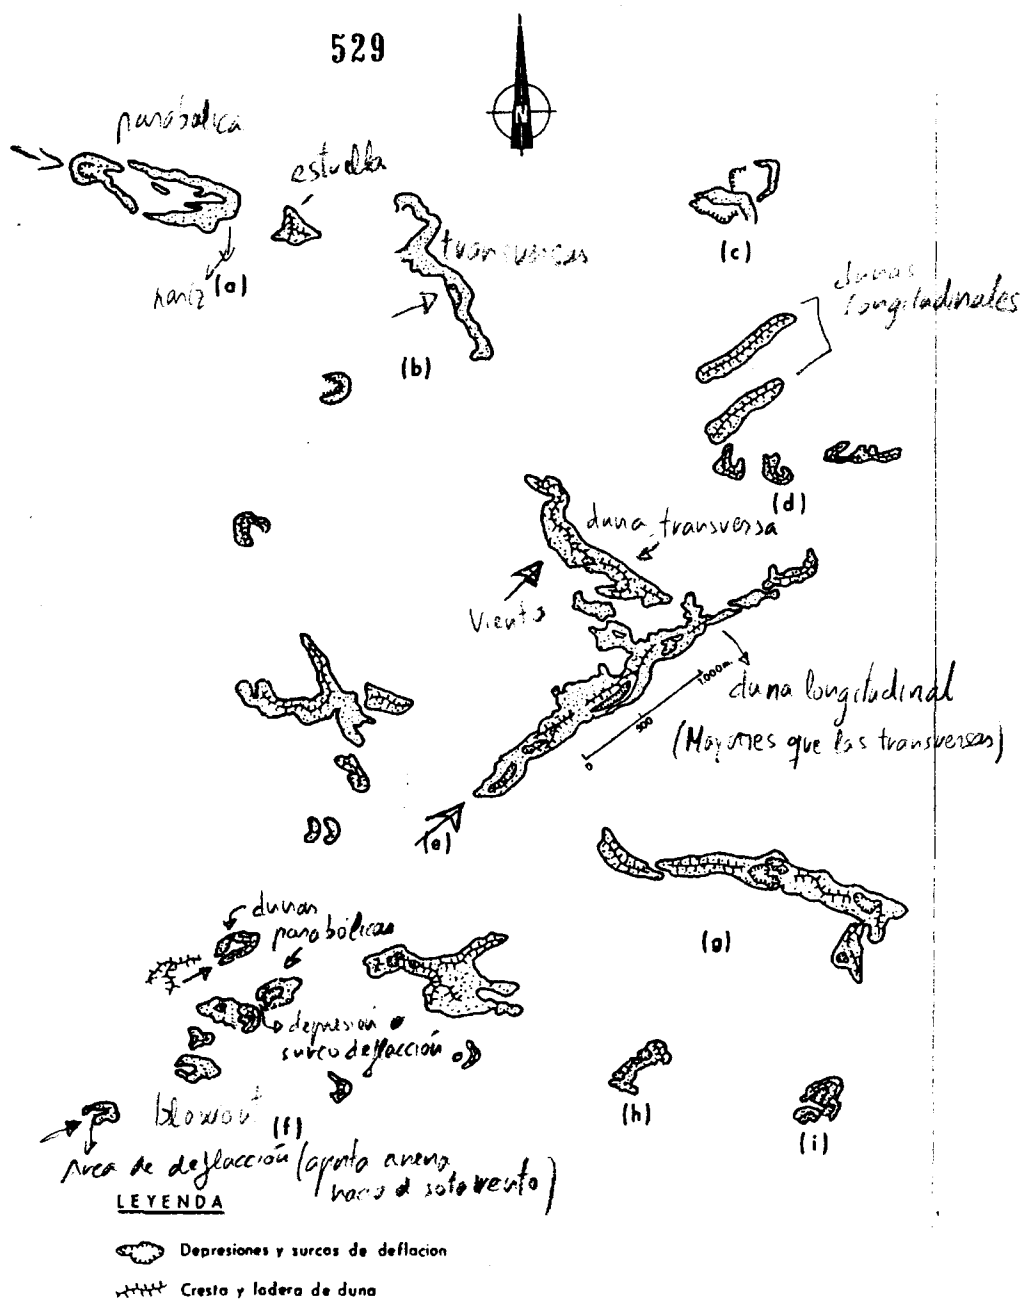 529
N
parabólica
estrella
transversas
nariz
(a)
(b)
(c)
dunas
longitudinales
(d)
duna transversa
Viento
1.000m.
500
0
duna longitudinal
(Mayores que las transversas)
(e)
dunas
parabólicas
(g)
depresión o
surco deflacción
blowout
(f)
(h)
(i)
Area de deflacción (aporta arena
hacia el sotavento)
LEYENDA
Depresiones y surcos de deflacion
Cresta y ladera de duna